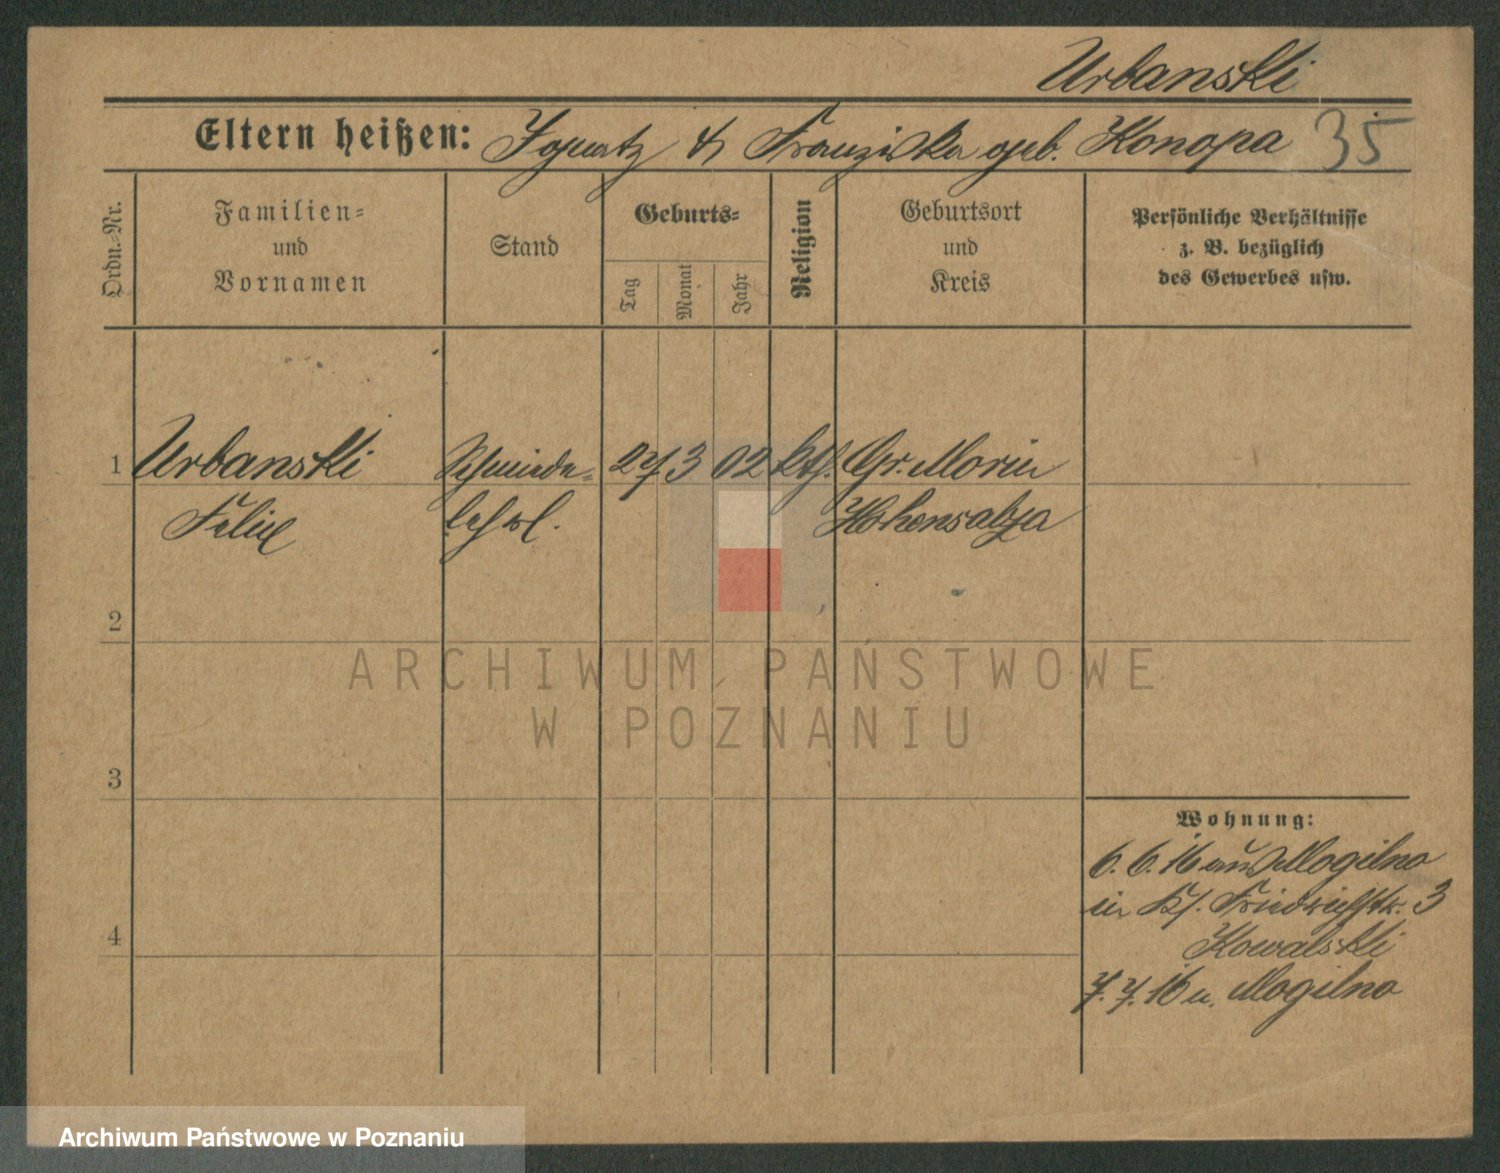 Urbanski
Eltern heißen: Ignatz & Franziska geb. Konopa 35
Ordn.-Nr.
Familien-
und
Vornamen
Stand
Geburts-
Tag
Monat
Jahr
Religion
Geburtsort
und
Kreis
Persönliche Verhältnisse
z. B. bezüglich
des Gewerbes usw.
1 Urbanski Schmiede- 27 3 02 kth. Gr. Morin
Felix lehrl. Hohensalza
2
3
4
Wohnung:
6. 6. 16 aus Mogilno
in Kl. Friedrichstr. 3
Kowalski
7. 7. 16 n. Mogilno
ARCHIWUM PAŃSTWOWE
W POZNANIU
Archiwum Państwowe w Poznaniu